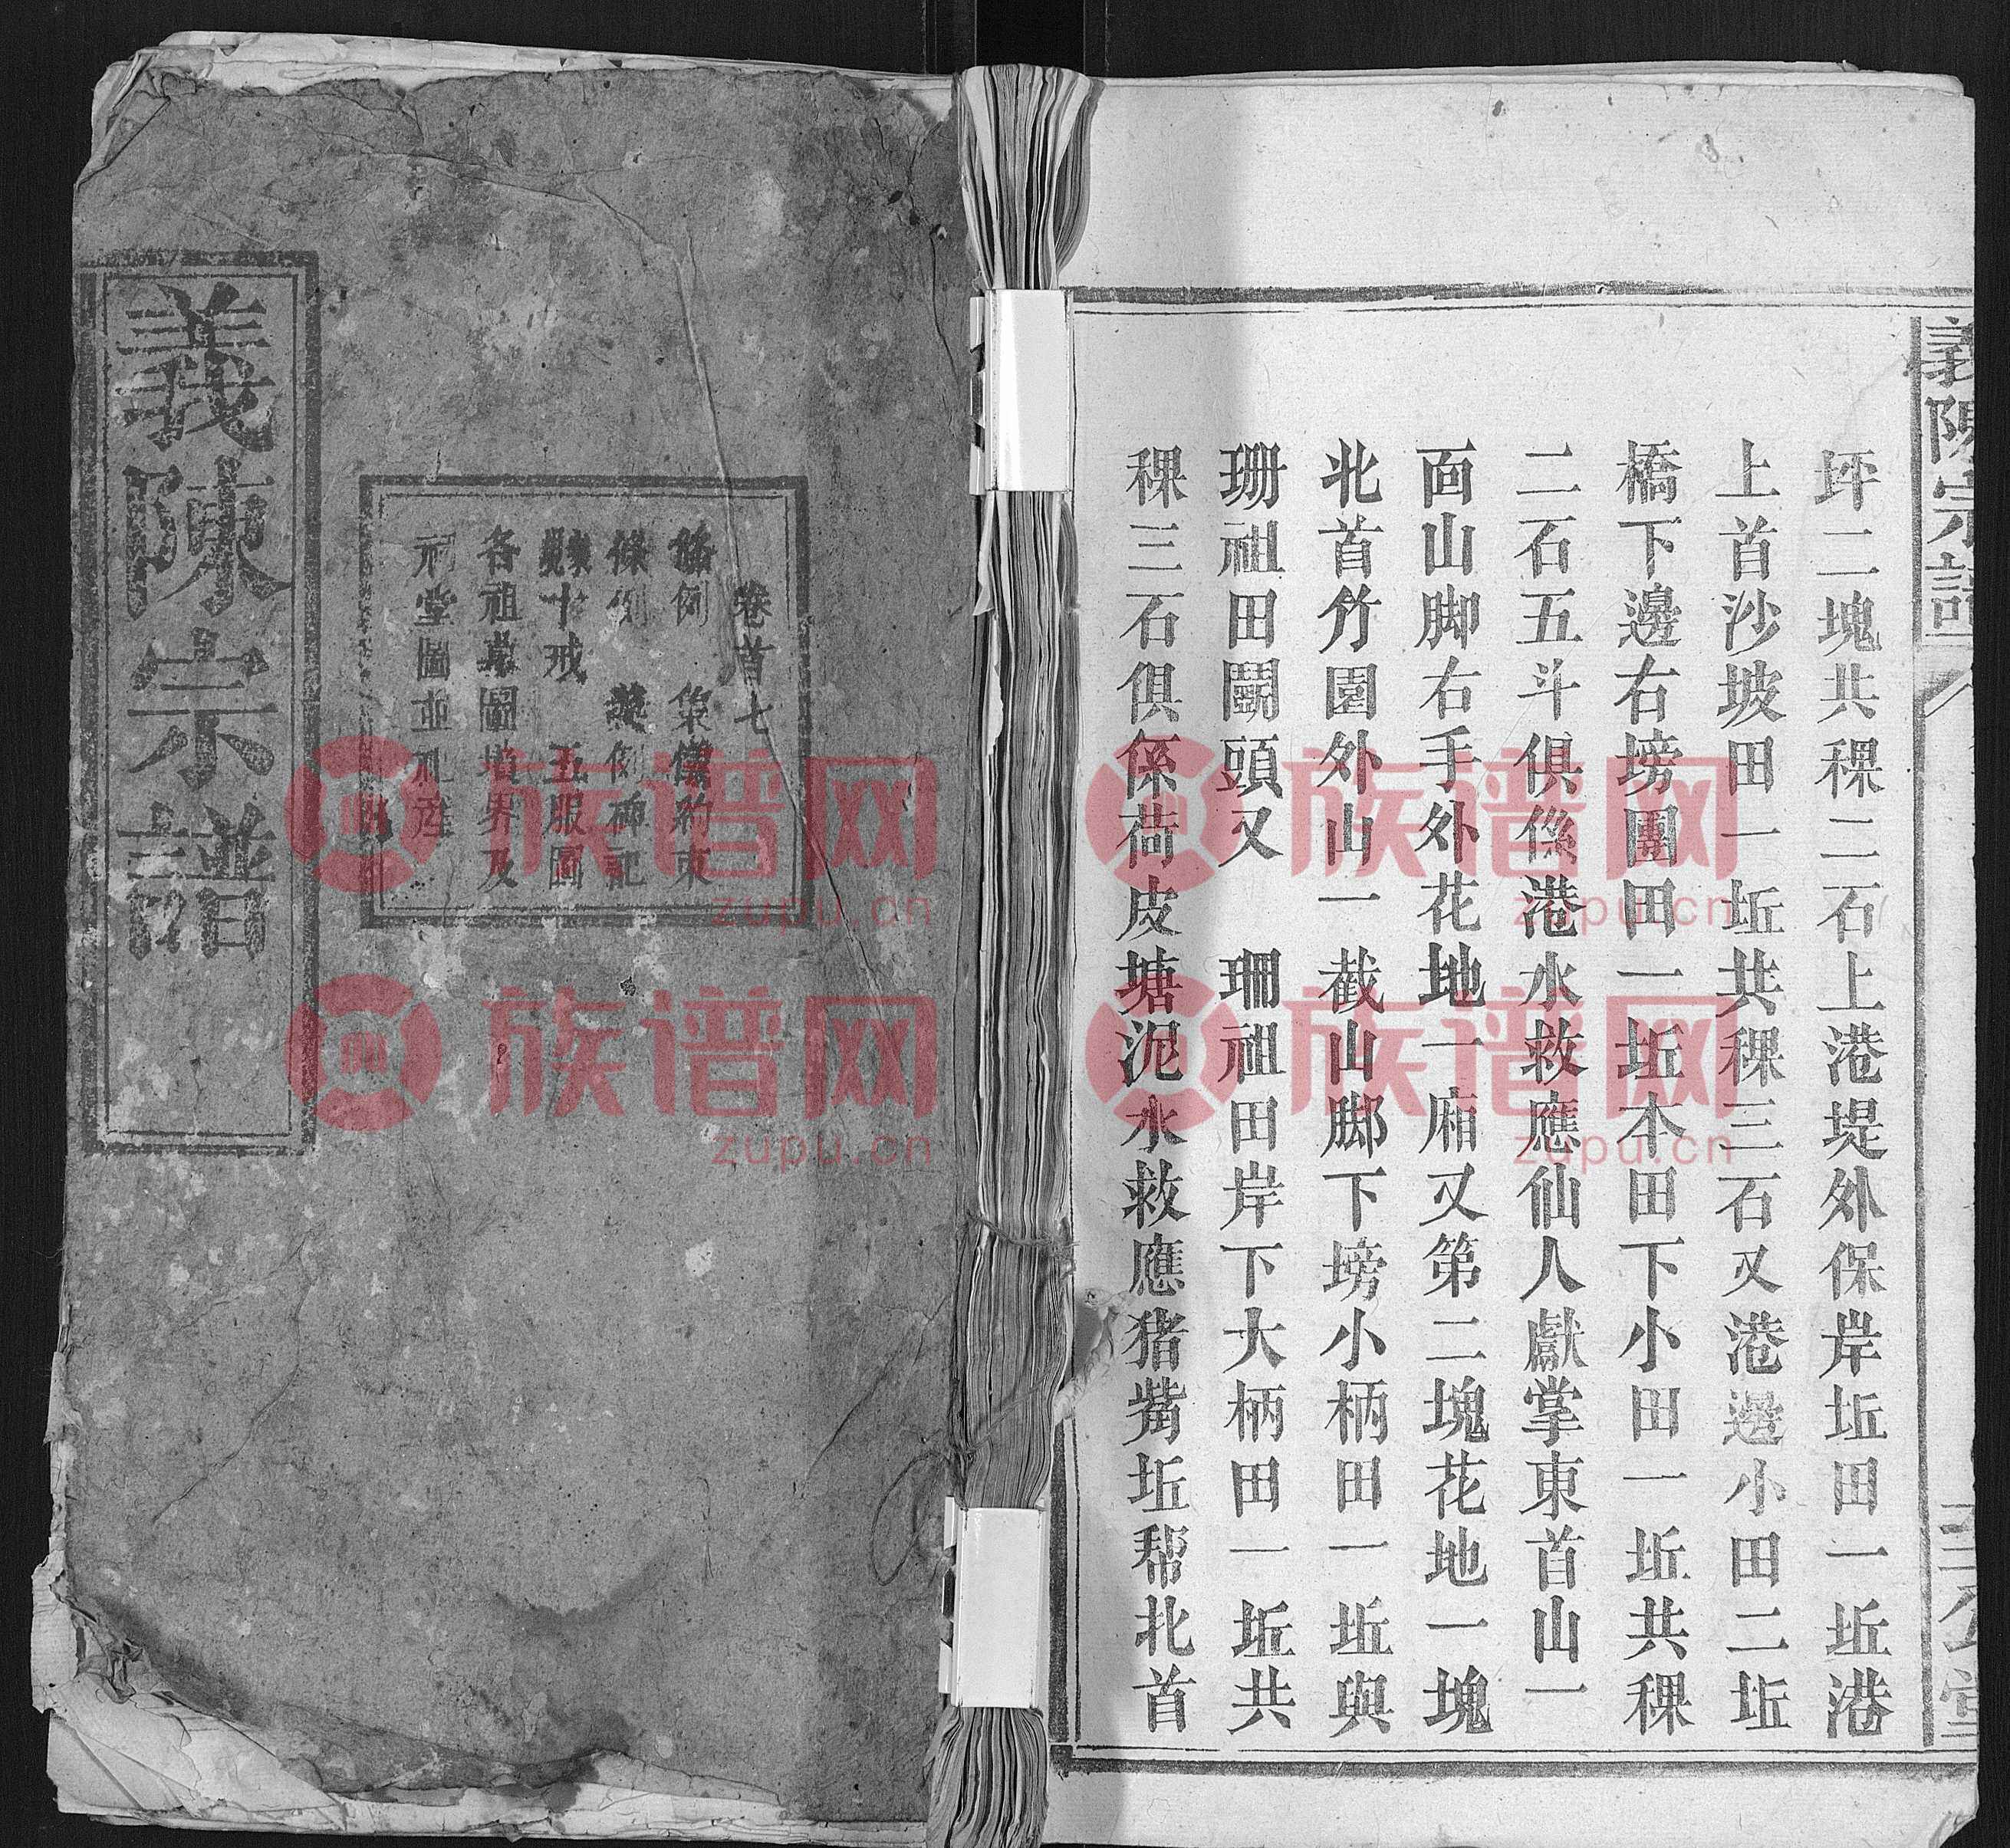 義陳宗譜
坪二塊共稞二石上港堤外保岸坵田一坵港
上首沙坡田一坵共稞三石又港邊小田二坵
橋下邊右塝團田一坵本田下小田一坵共稞
二石五斗俱係港水救應仙人獻掌東首山一
面山脚右手外花地一廂又第二塊花地一塊
北首竹園外山一截山脚下塝小柄田一坵與
珊祖田鬭頭又 珊祖田岸下大柄田一坵共
稞三石俱係荷皮塘泥水救應猪嘴坵帮北首
卷首七
條例
十戒 五服圖
各祖墓圖墳界及
祠堂圖並祀産
義陳宗譜
族谱网
zupu.cn
族谱网
zupu.cn
族谱网
zupu.cn
族谱网
zupu.cn